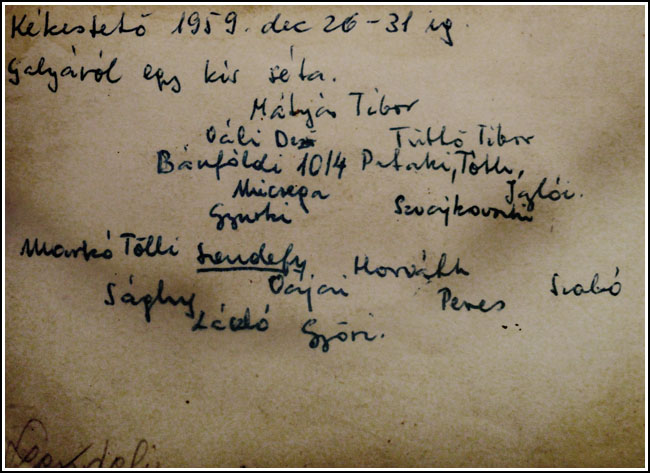 Kékestető 1959. dec 26-31 ig.
Galyáról egy kis séta.
Mátyás Tibor
Váli Dezső Tüttő Tibor
Bánföldi 10/4 Pataki, Tölli, Iglói.
Micsepa
Gyurki Szvajkovszki
Markó Tölli Sendefy Horváth
Sághy Vajai Peres Szabó
László Győri.